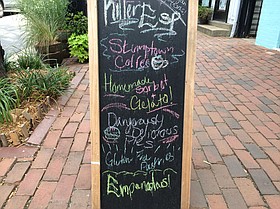 Killer ESP
Stumptown
Coffee
Homemade
Sorbet
Gelato!
Dangerously
Delicious
Pies
Gluten
Empanadas!